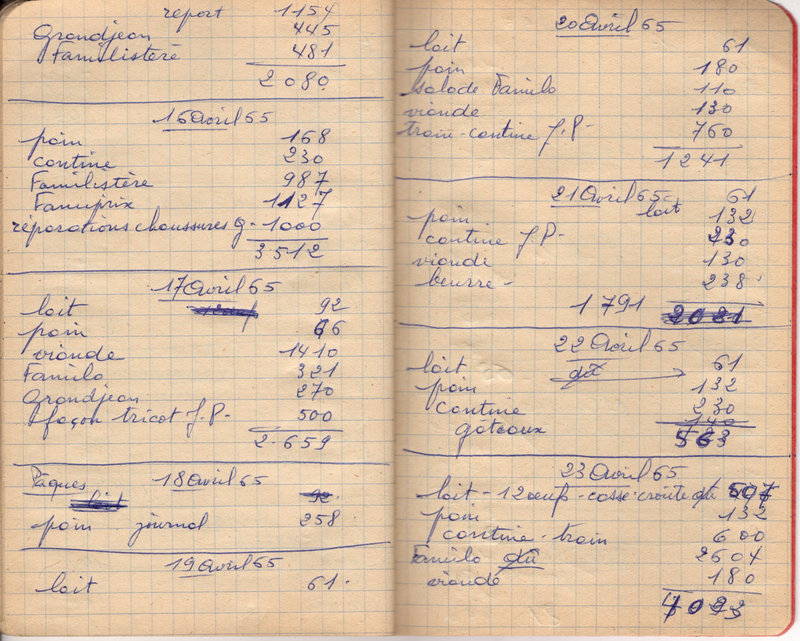 report 1154
Grandjean 445
Familistère 481
2080
16 Avril 65
pain 168
cantine 230
Familistère 987
Famiprix 1127
réparations chaussures G. 1000
3512
17 Avril 65
lait 92
pain 66
viande 1410
Familo 321
Grandjean 270
façon tricot J.P- 500
2.659
Pâques 18 Avril 65 92.
lait
pain journal 258
19 Avril 65
lait 61.
20 Avril 65
lait 61
pain 180
salade Familo 110
viande 130
train-cantine J.P- 760
1241
21 Avril 65 61
pain lait 132
cantine J.P- 230
viande 130
beurre- 238.
1791 2021
22 Avril 65
lait dû 61
pain 132
cantine 230
gâteaux 140
563
23 Avril 65
lait-12 oeufs-casse-croûte dû 507
pain 132
cantine-train 600
Familo dû 2604
viande 180
4023